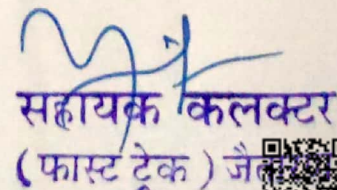 सहायक कलक्टर
( फास्ट ट्रेक )